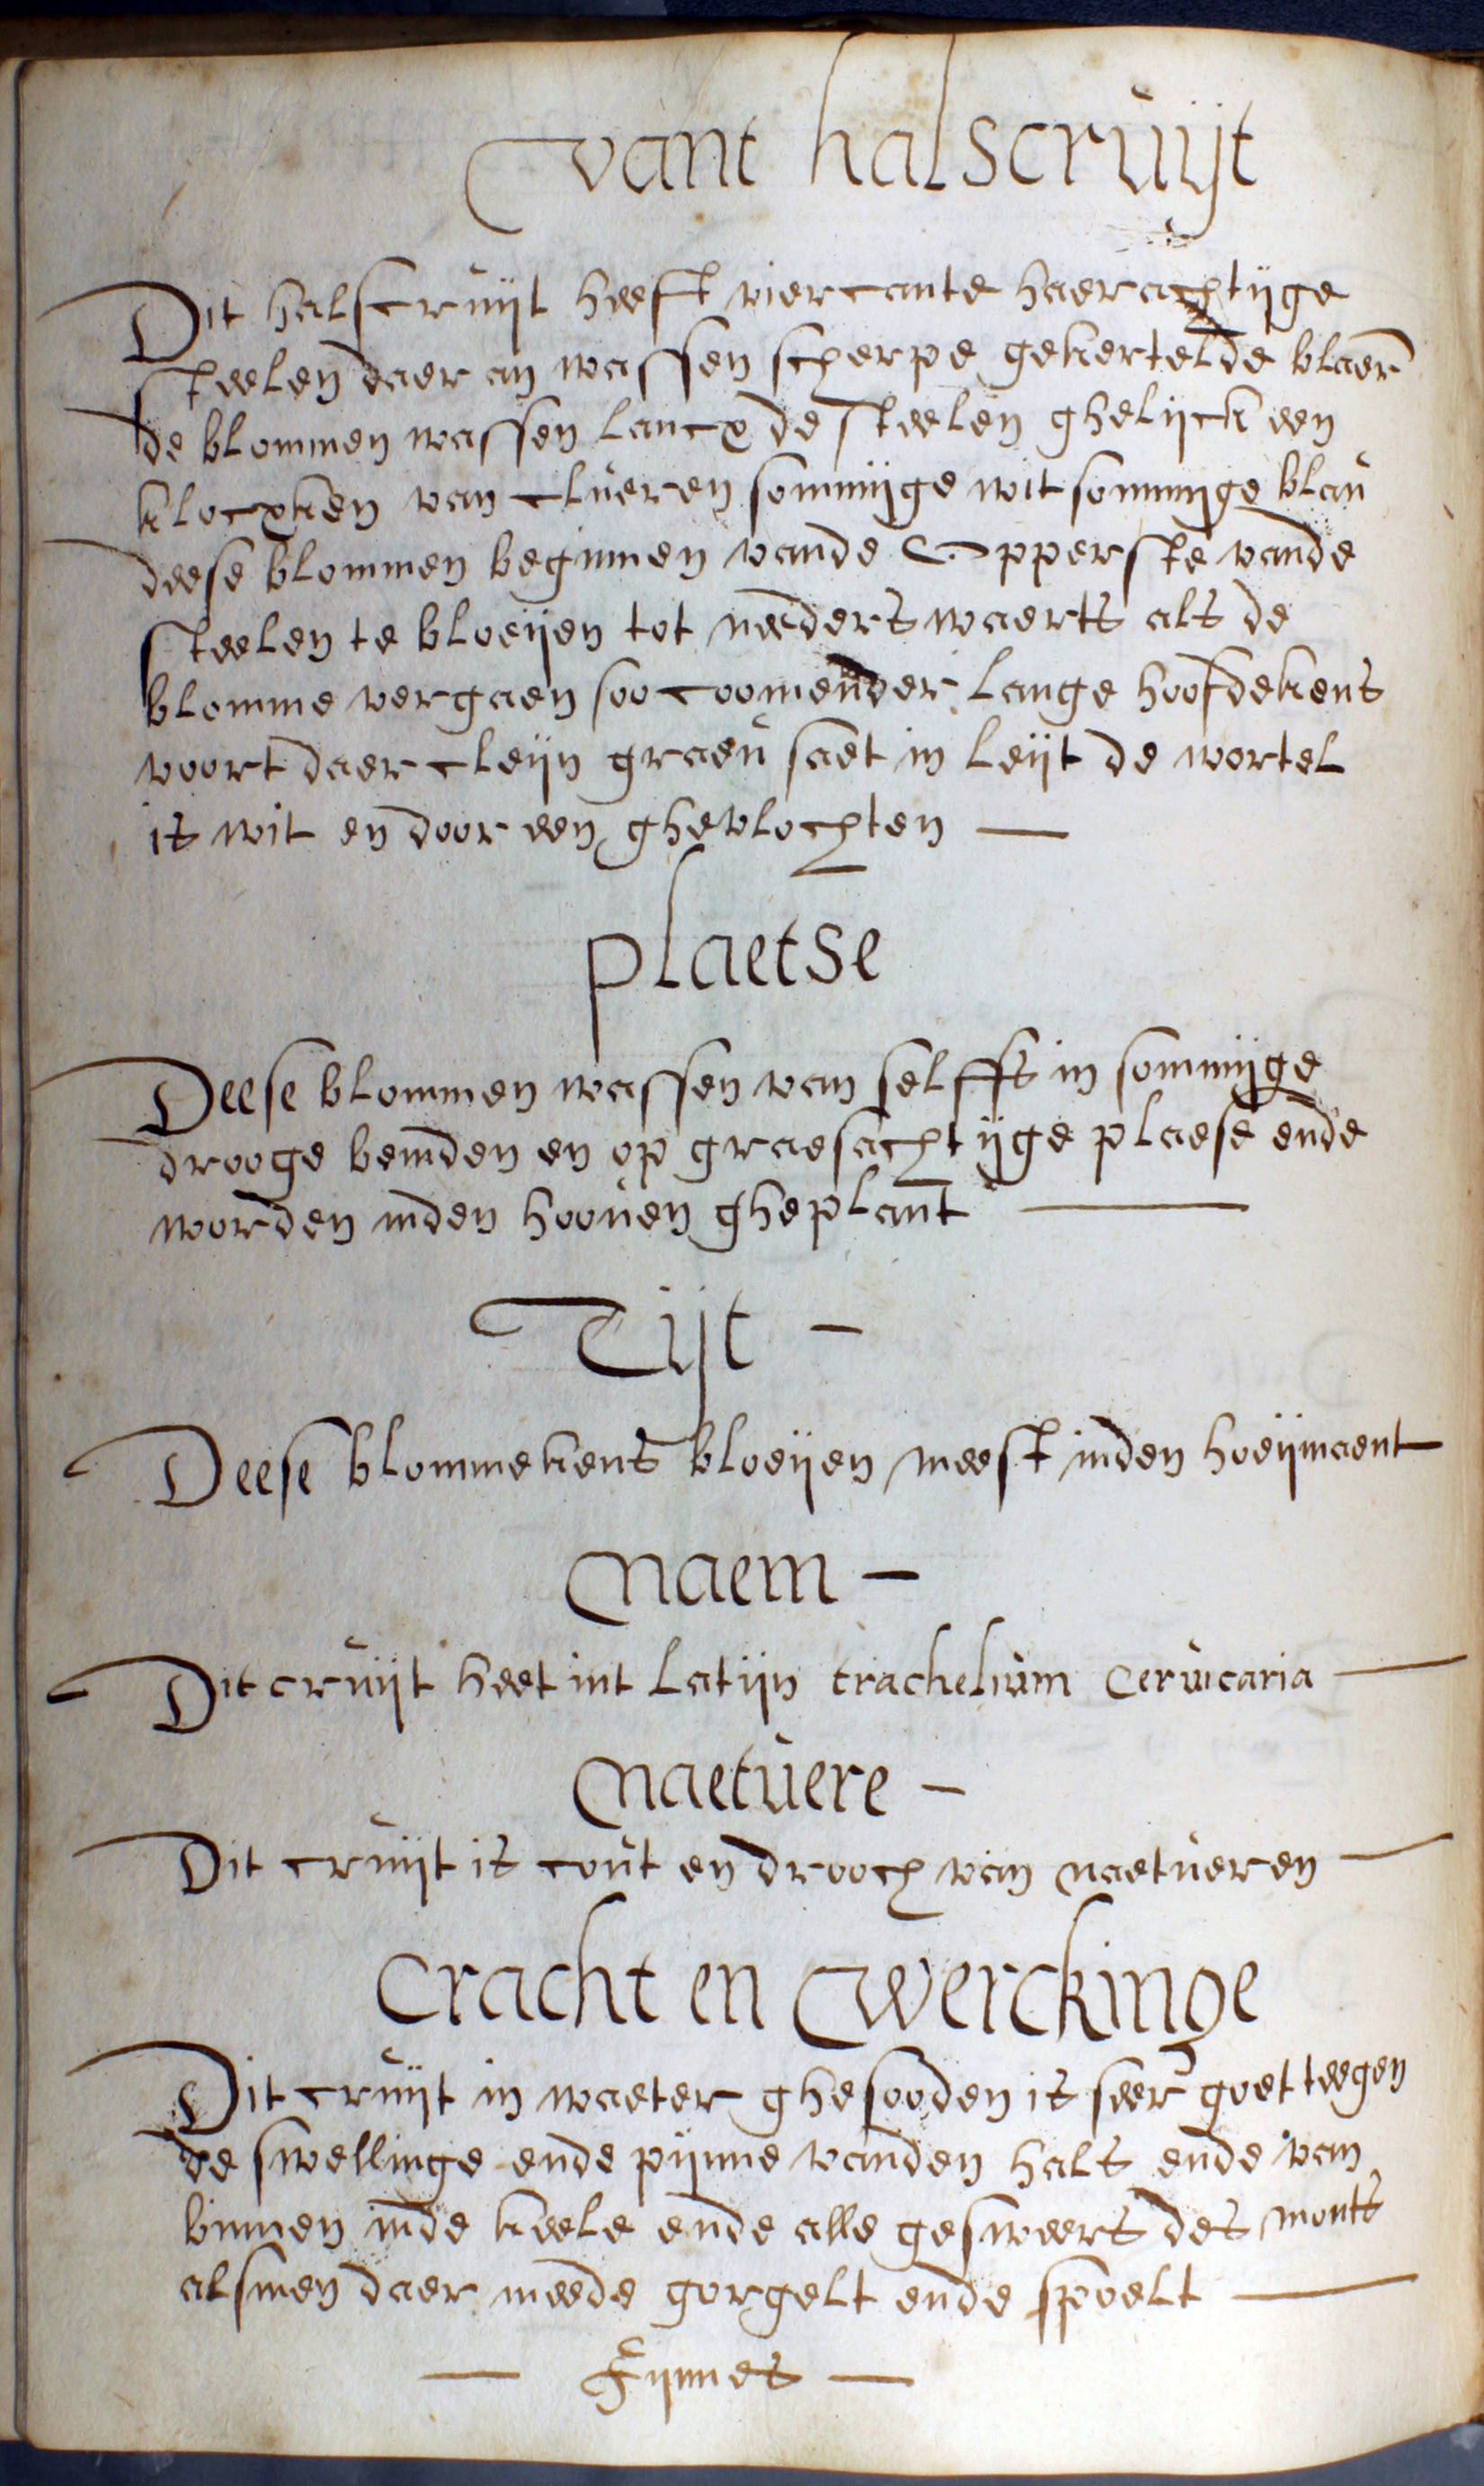 vant halscruijt
Dit halscruijt heeft viercante haerachtijge
steelen daer an wassen scherpe gekertelde blaer
de blommen wassen lancx de steelen ghelijck een
klocxken van clueren sommijge wit sommijge blau
deese blommen beginnen vande opperste vande
steelen te bloeijen tot needertswaerts als de
blomme vergaen soo coomender lange hoofdekens
voort daer cleijn graeu saet in leijt de wortel
is wit en door een ghevlochten —
plaetse
Deese blommen wassen van selffs in sommijge
drooge bemden en op graesachtijge plaese ende
worden inden hoouen gheplant —
Tijt —
Deese blommekens bloeijen meest inden hoeijmaent
Naem —
Dit cruijt heet int latijn trachelium Ceruicaria —
Naetuere —
Dit cruijt is cout en drooch van naetueren —
Cracht en werckinge
Dit cruijt in waeter ghesooden is seer goet teegen
de swellinge ende pijnne vanden hals ende van
binnen inde keele ende alle gesweers des monts
alsmen daer meede gorgelt ende spoelt —
— Fijnnes —